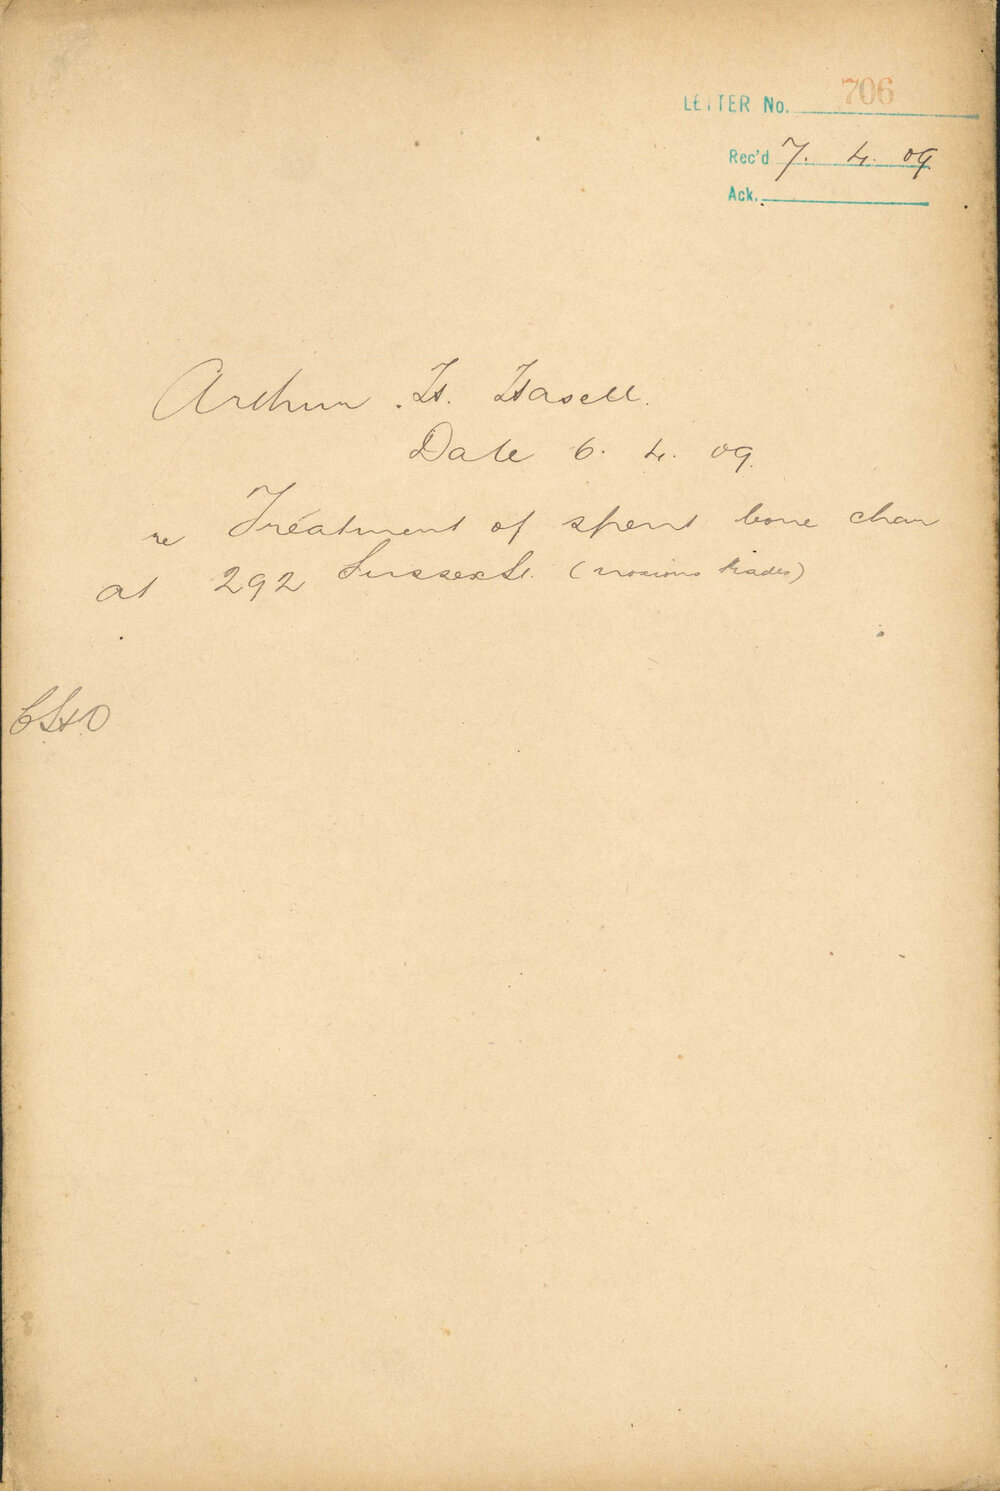 LETTER No. 706
Rec'd 7. 4. 09
Ack.
Arthur H. Hasell.
Date 6. 4. 09.
re Treatment of spent bone char
at 292 Sussex St. (noxious trades)
CSHO